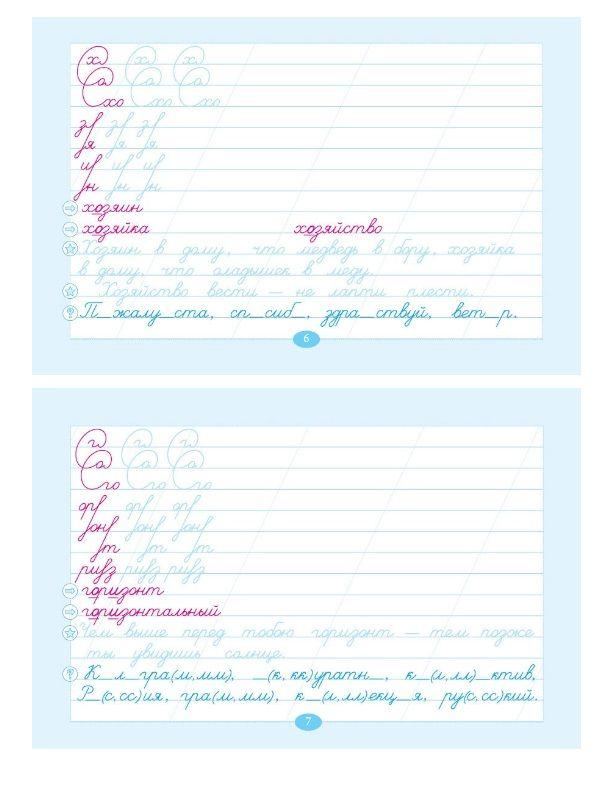 х х х
а а а
хо хо хо
зя зя зя
я я я
ий ий ий
йн йн йн
хозяин
хозяйка хозяйство
Хозяин в дому, что медведь в бору, хозяйка
в дому, что оладышек в меду.
Хозяйство вести — не лапти плести.
П_жалу_ста, сп_сиб_, здра_ствуй, вет_р.
6
г г г
а а а
го го го
ори ори ори
зонт зонт зонт
т т т
риз риз риз
горизонт
горизонтальный
Чем выше перед тобою горизонт — тем позже
ты увидишь солнце.
К_л_гра(м,мм), _(к,кк)уратн_, к_(л,лл)_ктив,
Р_(с,сс)ия, гра(м,мм), к_(л,лл)екц_я, ру(с,сс)кий.
7